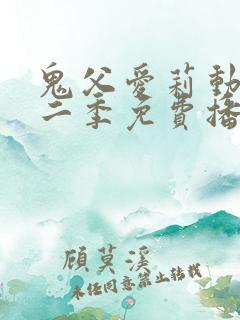 鬼父愛莉動
二季免費播
顧莫溪
未经同意禁止转载